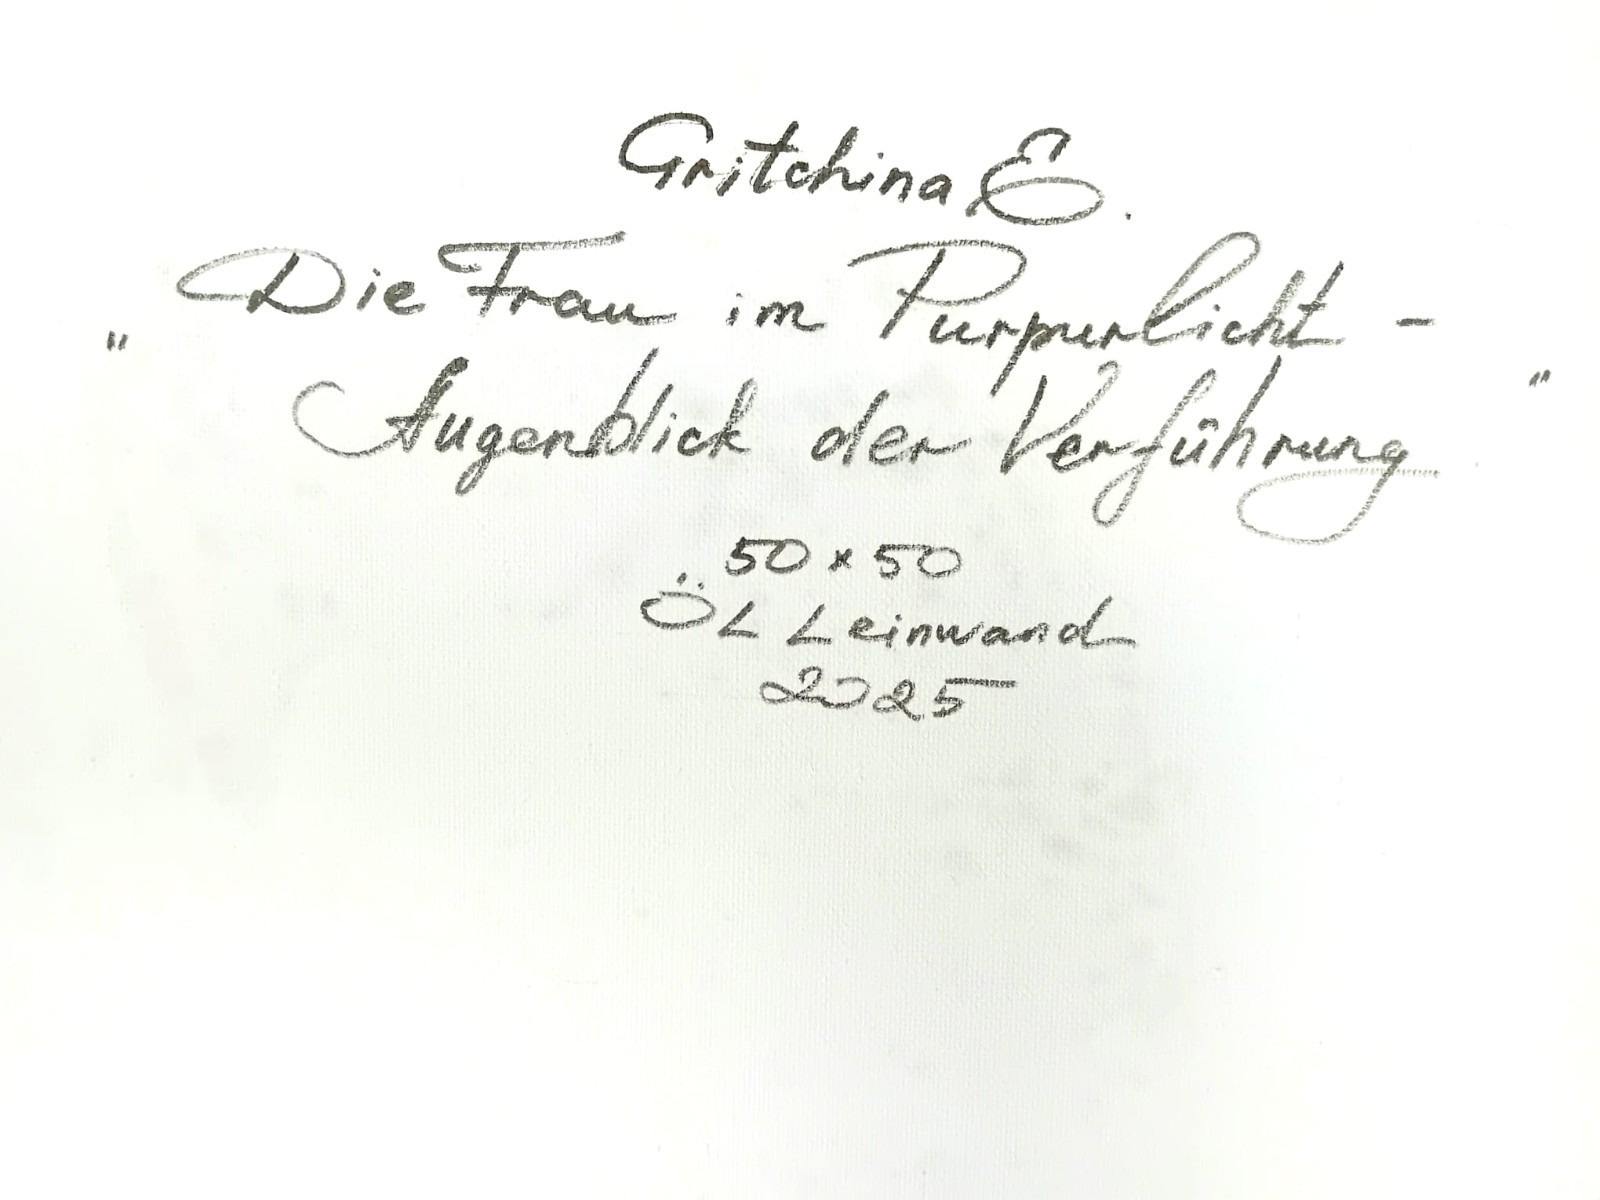 Gritchina E.
"Die Frau im Purpurlicht -
Augenblick der Verführung"
50 x 50
ÖL Leinwand
2025